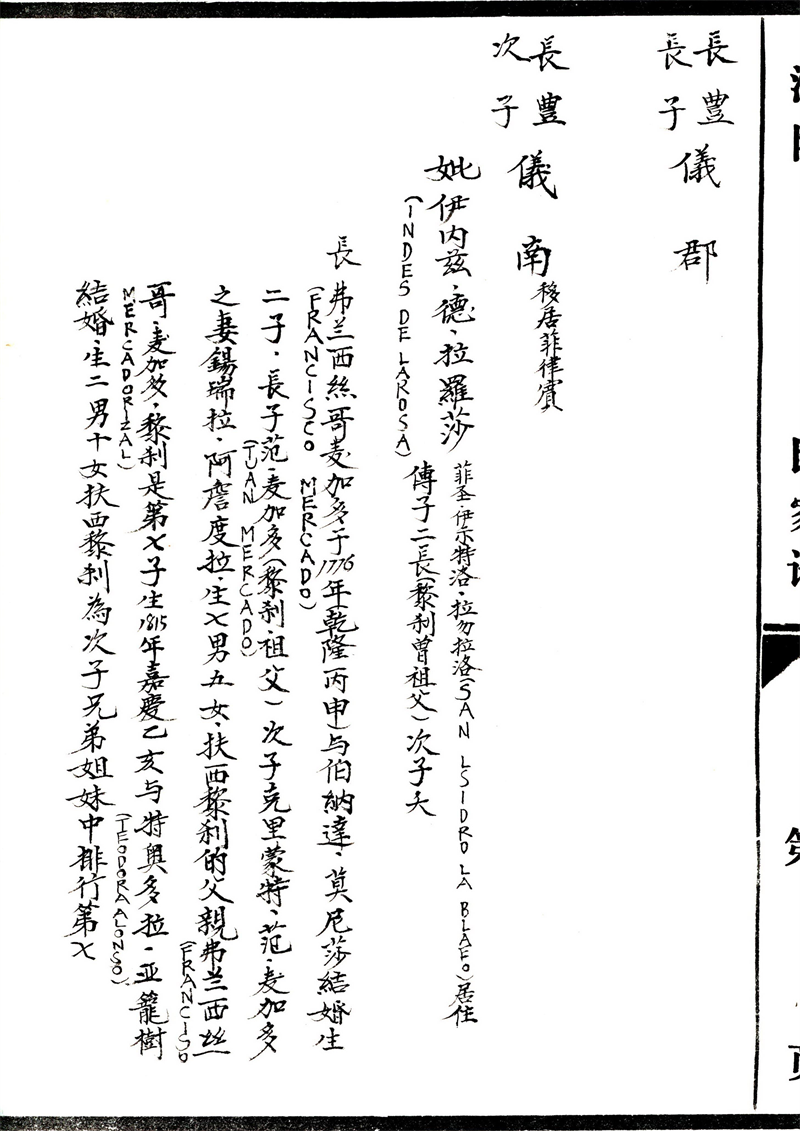 長豐儀 郡
長子
長豐儀 南 移居菲律賓
次子
妣伊内兹·德·拉羅莎 菲圣·伊示特洛·拉勿拉洛(SAN LSIDRO LA BLAFO)居住
(INDES DE LAROSA) 傳子二長(黎刹曾祖父)次子夭
長
弗兰西絲哥麦加多于1776年乾隆丙申与伯納達·莫尼莎結婚生
(FRANCISCO MERCADO)
二子·長子范·麦加多(黎刹·祖父)次子克里蒙特·范·麦加多
(TUAN MERCADO)
之妻錫瑞拉·阿詹度拉·生七男五女·扶西黎刹的父親弗兰西丝
(FRANCISO
哥·麦加多·黎刹是第七子生1815年嘉慶乙亥与特奥多拉·亚籠樹
MERCADORIZAL) (TEODORA ALONSO)
結婚·生二男十女扶西黎刹為次子兄弟姐妹中排行第七
家谱
第
頁